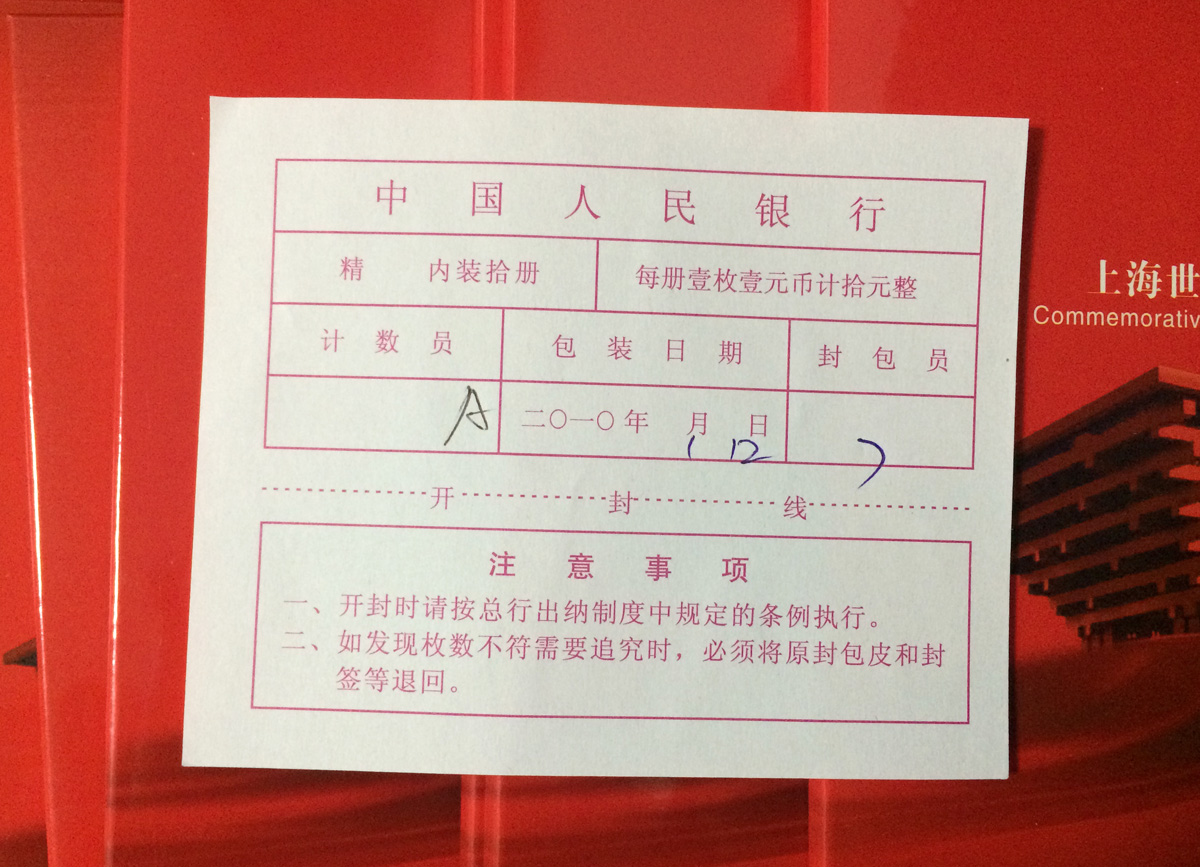 中国人民银行
精 内装拾册 每册壹枚壹元币计拾元整
计数员 包装日期 封包员
A 二〇一〇年 月 日
( 12 )
开封线
注意事项
一、开封时请按总行出纳制度中规定的条例执行。
二、如发现枚数不符需要追究时，必须将原封包皮和封
签等退回。
上海世
Commemorativ